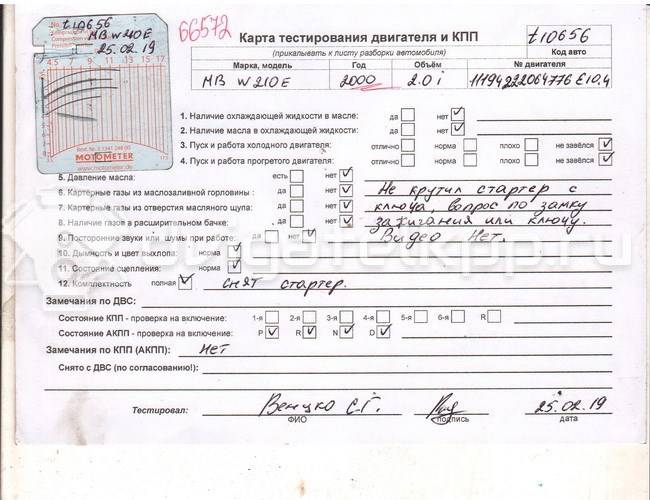 t10656
MB W210E
25.02.19
4.5 7 9 11 13 15 17
MOTOMETER
www.motometer.de
66572
Карта тестирования двигателя и КПП
(прикалывать к листу разборки автомобиля)
t10656
Код авто
Марка, модель Год Объём № двигателя
MB W210E 2000 2.0i 11194222064776 E10.4
1. Наличие охлаждающей жидкости в масле: да нет
2. Наличие масла в охлаждающей жидкости: да нет
3. Пуск и работа холодного двигателя: отлично норма плохо не завёлся
4. Пуск и работа прогретого двигателя: отлично норма плохо не завёлся
5. Давление масла: есть нет
6. Картерные газы из маслозаливной горловины : да нет Не крутил стартер с
7. Картерные газы из отверстия масляного щупа: да нет ключа, вопрос по замку
8. Наличие газов в расширительном бачке: да нет зажигания или ключу.
9. Посторонние звуки или шумы при работе: да нет Видео Нет.
10. Дымность и цвет выхлопа: норма
11. Состояние сцепления: норма
12. Комплектность полная снят стартер.
Замечания по ДВС:
Состояние КПП - проверка на включение: 1-я 2-я 3-я 4-я 5-я 6-я R
Состояние АКПП - проверка на включение: P R N D
Замечания по КПП (АКПП): Нет
Снято с ДВС (по согласованию!):
Тестировал: Венцко С.Г. 25.02.19
ФИО подпись дата
dvigatelkpp.ru